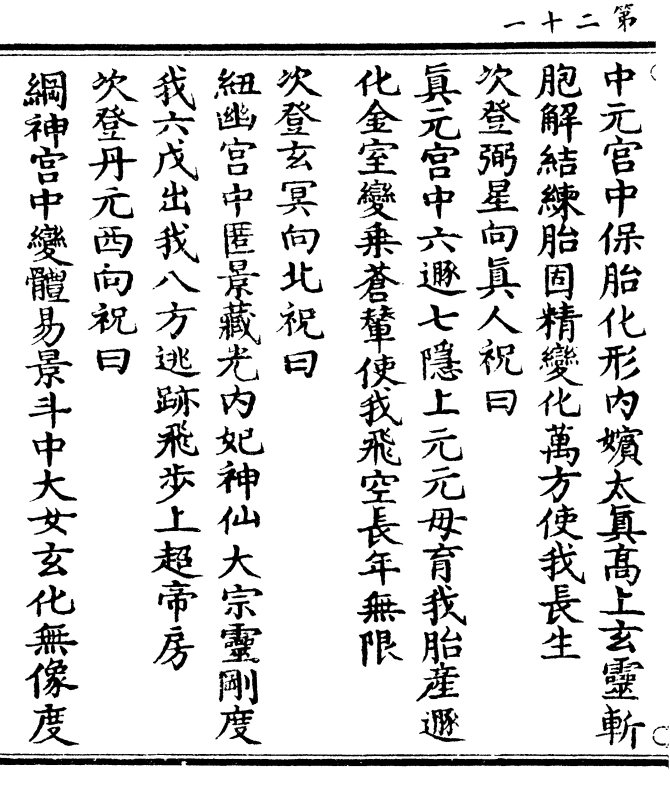 第二十一
中元宫中保胎化形内嬪太真髙上玄靈斬
胞解結練胎固精變化萬方使我長生
次登弼星向真人祝曰
真元宫中六遯七隱上元元母育我胎産遯
化金室變乗蒼輦使我飛空長年無限
次登玄冥向北祝曰
紐幽宫中匿景藏光内妃神仙大宗靈剛度
我六戊出我八方逃跡飛步上超帝房
次登丹元西向祝曰
綱神宫中變體易景斗中大女玄化無像度